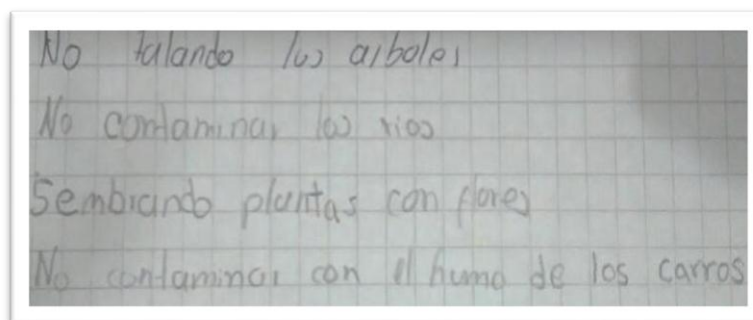 No talando los arboles
No contaminar los rios
Sembrando plantas con flores
No contaminar con el humo de los carros